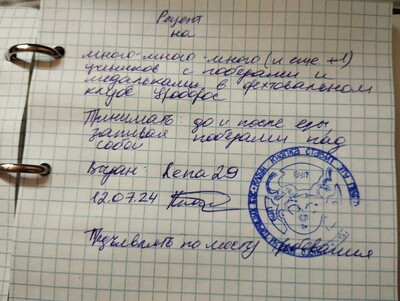 Рецепт
на
много-много-много (и еще +1)
учеников с победами и
медальками в фехтовальном
клубе Уроборос
Принимать до и после еды,
запивая победами над
собой
Выдан: Лепа 29
12.07.24
по месту требования